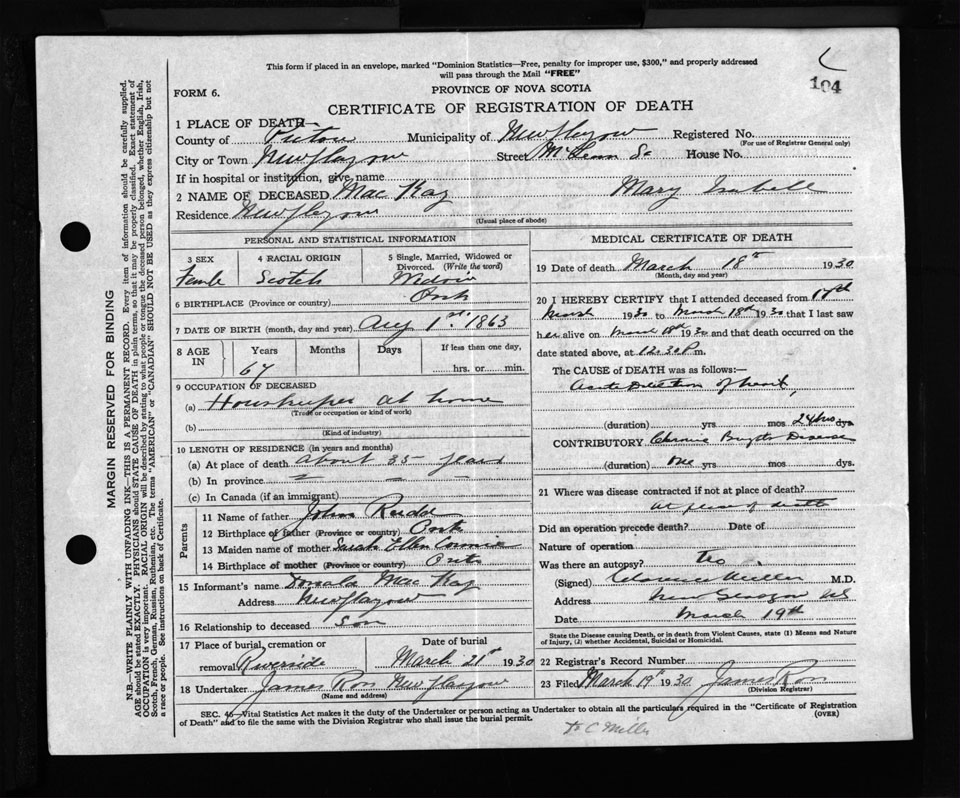 This form if placed in an envelope, marked "Dominion Statistics—Free, penalty for improper use, $300," and properly addressed
will pass through the Mail "FREE"
104
FORM 6.
PROVINCE OF NOVA SCOTIA
CERTIFICATE OF REGISTRATION OF DEATH
1 PLACE OF DEATH
County of Pictou Municipality of New Glasgow Registered No.
(For use of Registrar General only)
City or Town New Glasgow Street McLean St House No.
If in hospital or institution, give name
2 NAME OF DECEASED Mac Kay Mary Isabell
Residence New Glasgow
(Usual place of abode)
PERSONAL AND STATISTICAL INFORMATION
3 SEX 4 RACIAL ORIGIN 5 Single, Married, Widowed or Divorced. (Write the word)
Female Scotch Widow
6 BIRTHPLACE (Province or country) Ont
7 DATE OF BIRTH (month, day and year) Aug 1st. 1863
8 AGE IN Years Months Days If less than one day,
67 hrs. or min.
9 OCCUPATION OF DECEASED
(a) Houskeeper at home
(Trade or occupation or kind of work)
(b)
(Kind of industry)
10 LENGTH OF RESIDENCE (in years and months)
(a) At place of death about 35 years
(b) In province
(c) In Canada (if an immigrant)
Parents
11 Name of father John
12 Birthplace of father (Province or country) Ont
13 Maiden name of mother Sarah Ellen
14 Birthplace of mother (Province or country) Ont
15 Informant's name Donald Mac Kay
Address New Glasgow
16 Relationship to deceased Son
17 Place of burial, cremation or Date of burial
removal Riverside March 21st 1930
18 Undertaker James Ross New Glasgow
(Name and address)
MEDICAL CERTIFICATE OF DEATH
19 Date of death March 18th 1930
(Month, day and year)
20 I HEREBY CERTIFY that I attended deceased from 17th
March 1930 to March 18th 1930 that I last saw
her alive on March 18th 1930 and that death occurred on
date stated above, at 12.30 P m.
The CAUSE of DEATH was as follows:—
Acute Dilation of heart
(duration) yrs mos 24 hrs dys.
CONTRIBUTORY Chronic Brights Disease
(duration) One yrs mos dys.
21 Where was disease contracted if not at place of death?
At place of death
Did an operation precede death? Date of
Nature of operation
Was there an autopsy? No
(Signed) Clarence Miller M.D.
Address New Glasgow NS
Date March 19th
State the Disease causing Death, or in death from Violent Causes, state (1) Means and Nature
of Injury, (2) whether Accidental, Suicidal or Homicidal.
22 Registrar's Record Number
23 Filed March 19th 1930 James Ross
(Division Registrar)
SEC. 46—Vital Statistics Act makes it the duty of the Undertaker or person acting as Undertaker to obtain all the particulars required in the "Certificate of Registration
of Death" and to file the same with the Division Registrar who shall issue the burial permit. (OVER)
Dr C Miller
MARGIN RESERVED FOR BINDING
N.B.—WRITE PLAINLY WITH UNFADING INK—THIS IS A PERMANENT RECORD. Every item of information should be carefully supplied.
AGE should be stated EXACTLY. PHYSICIANS should STATE CAUSE OF DEATH in plain terms, so that it may be properly classified. Exact statement of
OCCUPATION is very important. RACIAL ORIGIN will be described by stating to what people or tongue the deceased person belonged, whether English, Irish,
Scotch, French, German, Russian, Ruthenian, etc. The terms "AMERICAN" or "CANADIAN" SHOULD NOT BE USED as they express citizenship but not
a race or people. See instructions on back of Certificate.